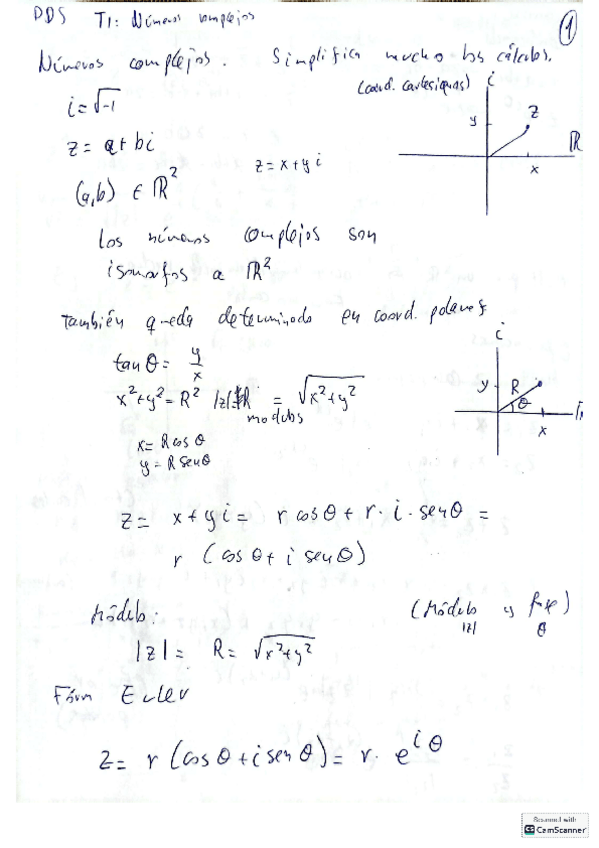 PDS T1: Números complejos
1
Números complejos. Simplifica mucho los cálculos.
(coord. cartesianas) i
i = √-1
y z ℝ
z = a + bi
x
z = x + y i
(a,b) ∈ ℝ²
Los números complejos son
isomorfos a ℝ²
También queda determinado en coord. polares
i
tan θ = y/x
y R θ
x² + y² = R² |z| R = √x²+y²
modulos
x
x = R cos θ
y = R sen θ
z = x + y i = r cos θ + r · i · sen θ =
r (cos θ + i sen θ)
Módulo: (Módulo y fase)
|z| θ
|z| = R = √x²+y²
Fórm Euler
z = r (cos θ + i sen θ) = r · e^iθ
Scanned with
CS CamScanner